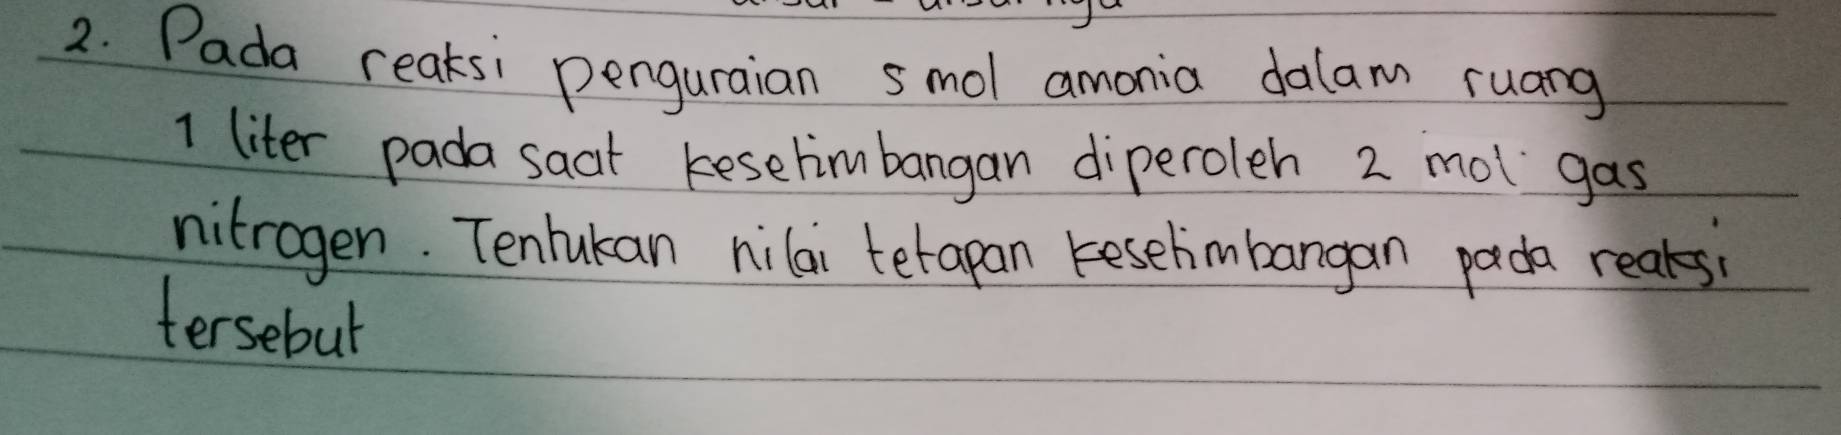 2. Pada reaksi penguraian 5 mol amonia dalam ruang
1 liter pada saat kesetimbangan diperoleh 2 mol gas
nitrogen. Tentukan nilai tetapan kesetimbangan pada reaksi
tersebut